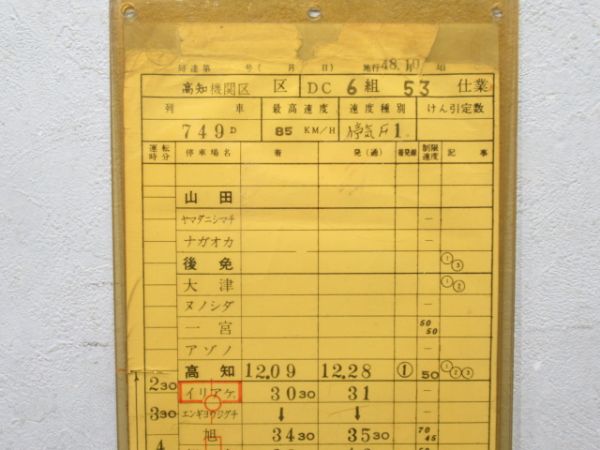 局達第 号( 月 日) 施行 48.10
高知機関区 区 DC 6組 53 仕業
列車 最高速度 速度種別 けん引定数
749D 85 KM/H 停気F1.
運転時分 停車場名 着 発(通) 着発線 制限速度 記事
山田
ヤマダニシマチ —
ナガオカ —
後免 ①③
大津 ①②
ヌノシダ —
一宮 50 50
アゾノ —
高知 12.09 12.28 ① 50 ①②③
2 30 イリアケ 30 30 31 —
3 30 エンギヨウジグチ ↓ ↓ —
旭 34 30 35 30 70 45
4